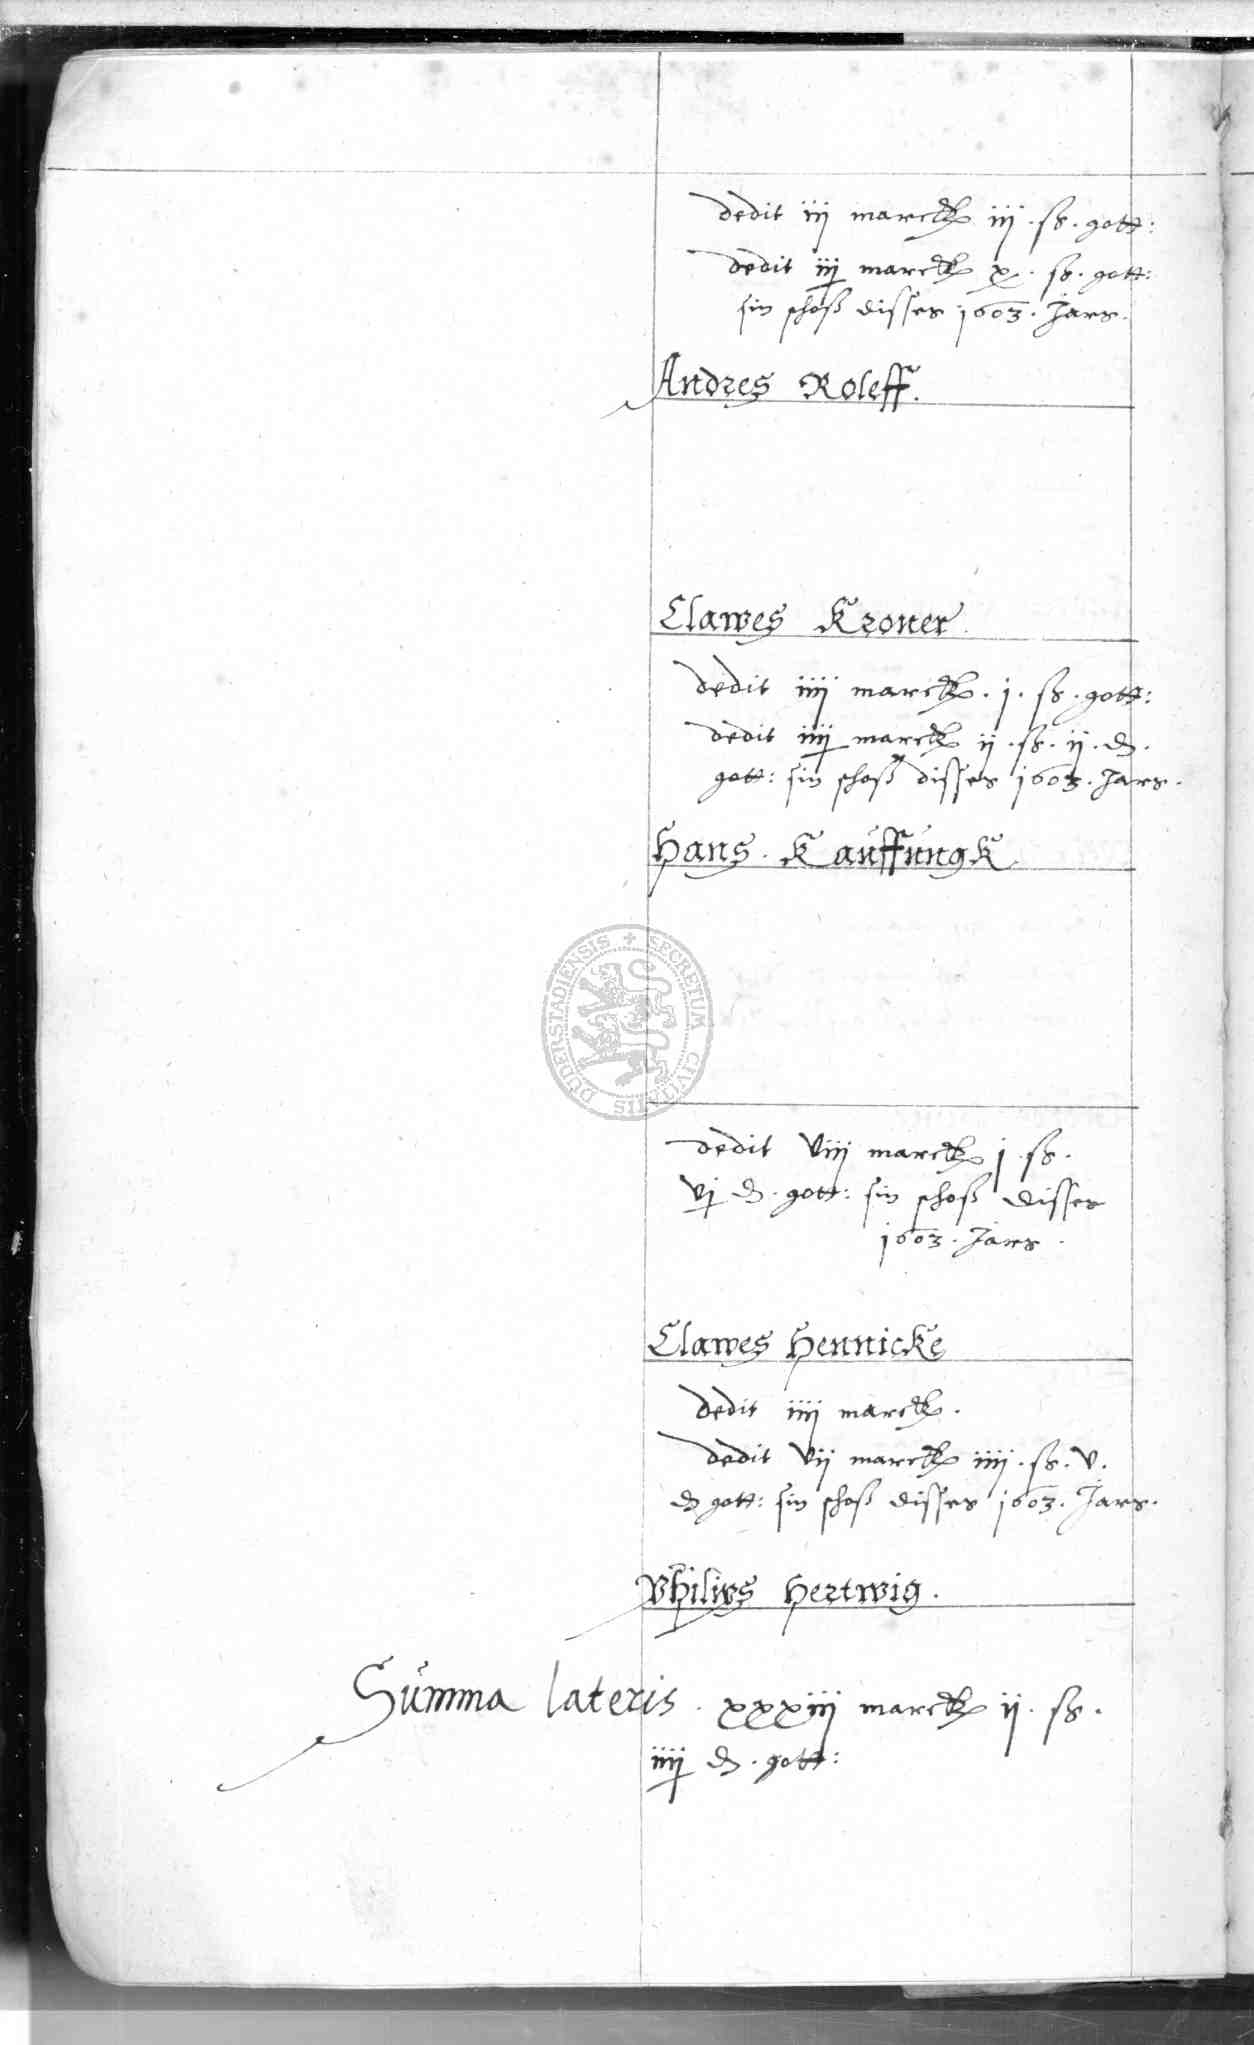 dedit iij marckk iij . ß . gott:
dedit iij marckk x . ß . gott:
sin schoß disses 1603 . Jars .
Andres Roleff .
Clawes Kroner .
dedit iiij marckk . j . ß . gott:
dedit iiij marckk ij . ß . ij . d .
gott: sin schoß disses 1603 . Jars .
Hans . Kauffungk
DUDERSTADIENSIS + SECRETUM CIVITATIS
dedit viij marckk j ß .
vj d . gott: sin schoß disses
1603 . Jars .
Clawes Hennicke
dedit iiij marckk .
dedit vij marckk iiij . ß . v .
d gott: sin schoß disses 1603 . Jars .
Philips Hertwig .
Summa lateris . xxxiij marckk ij . ß .
iiij d . gott: